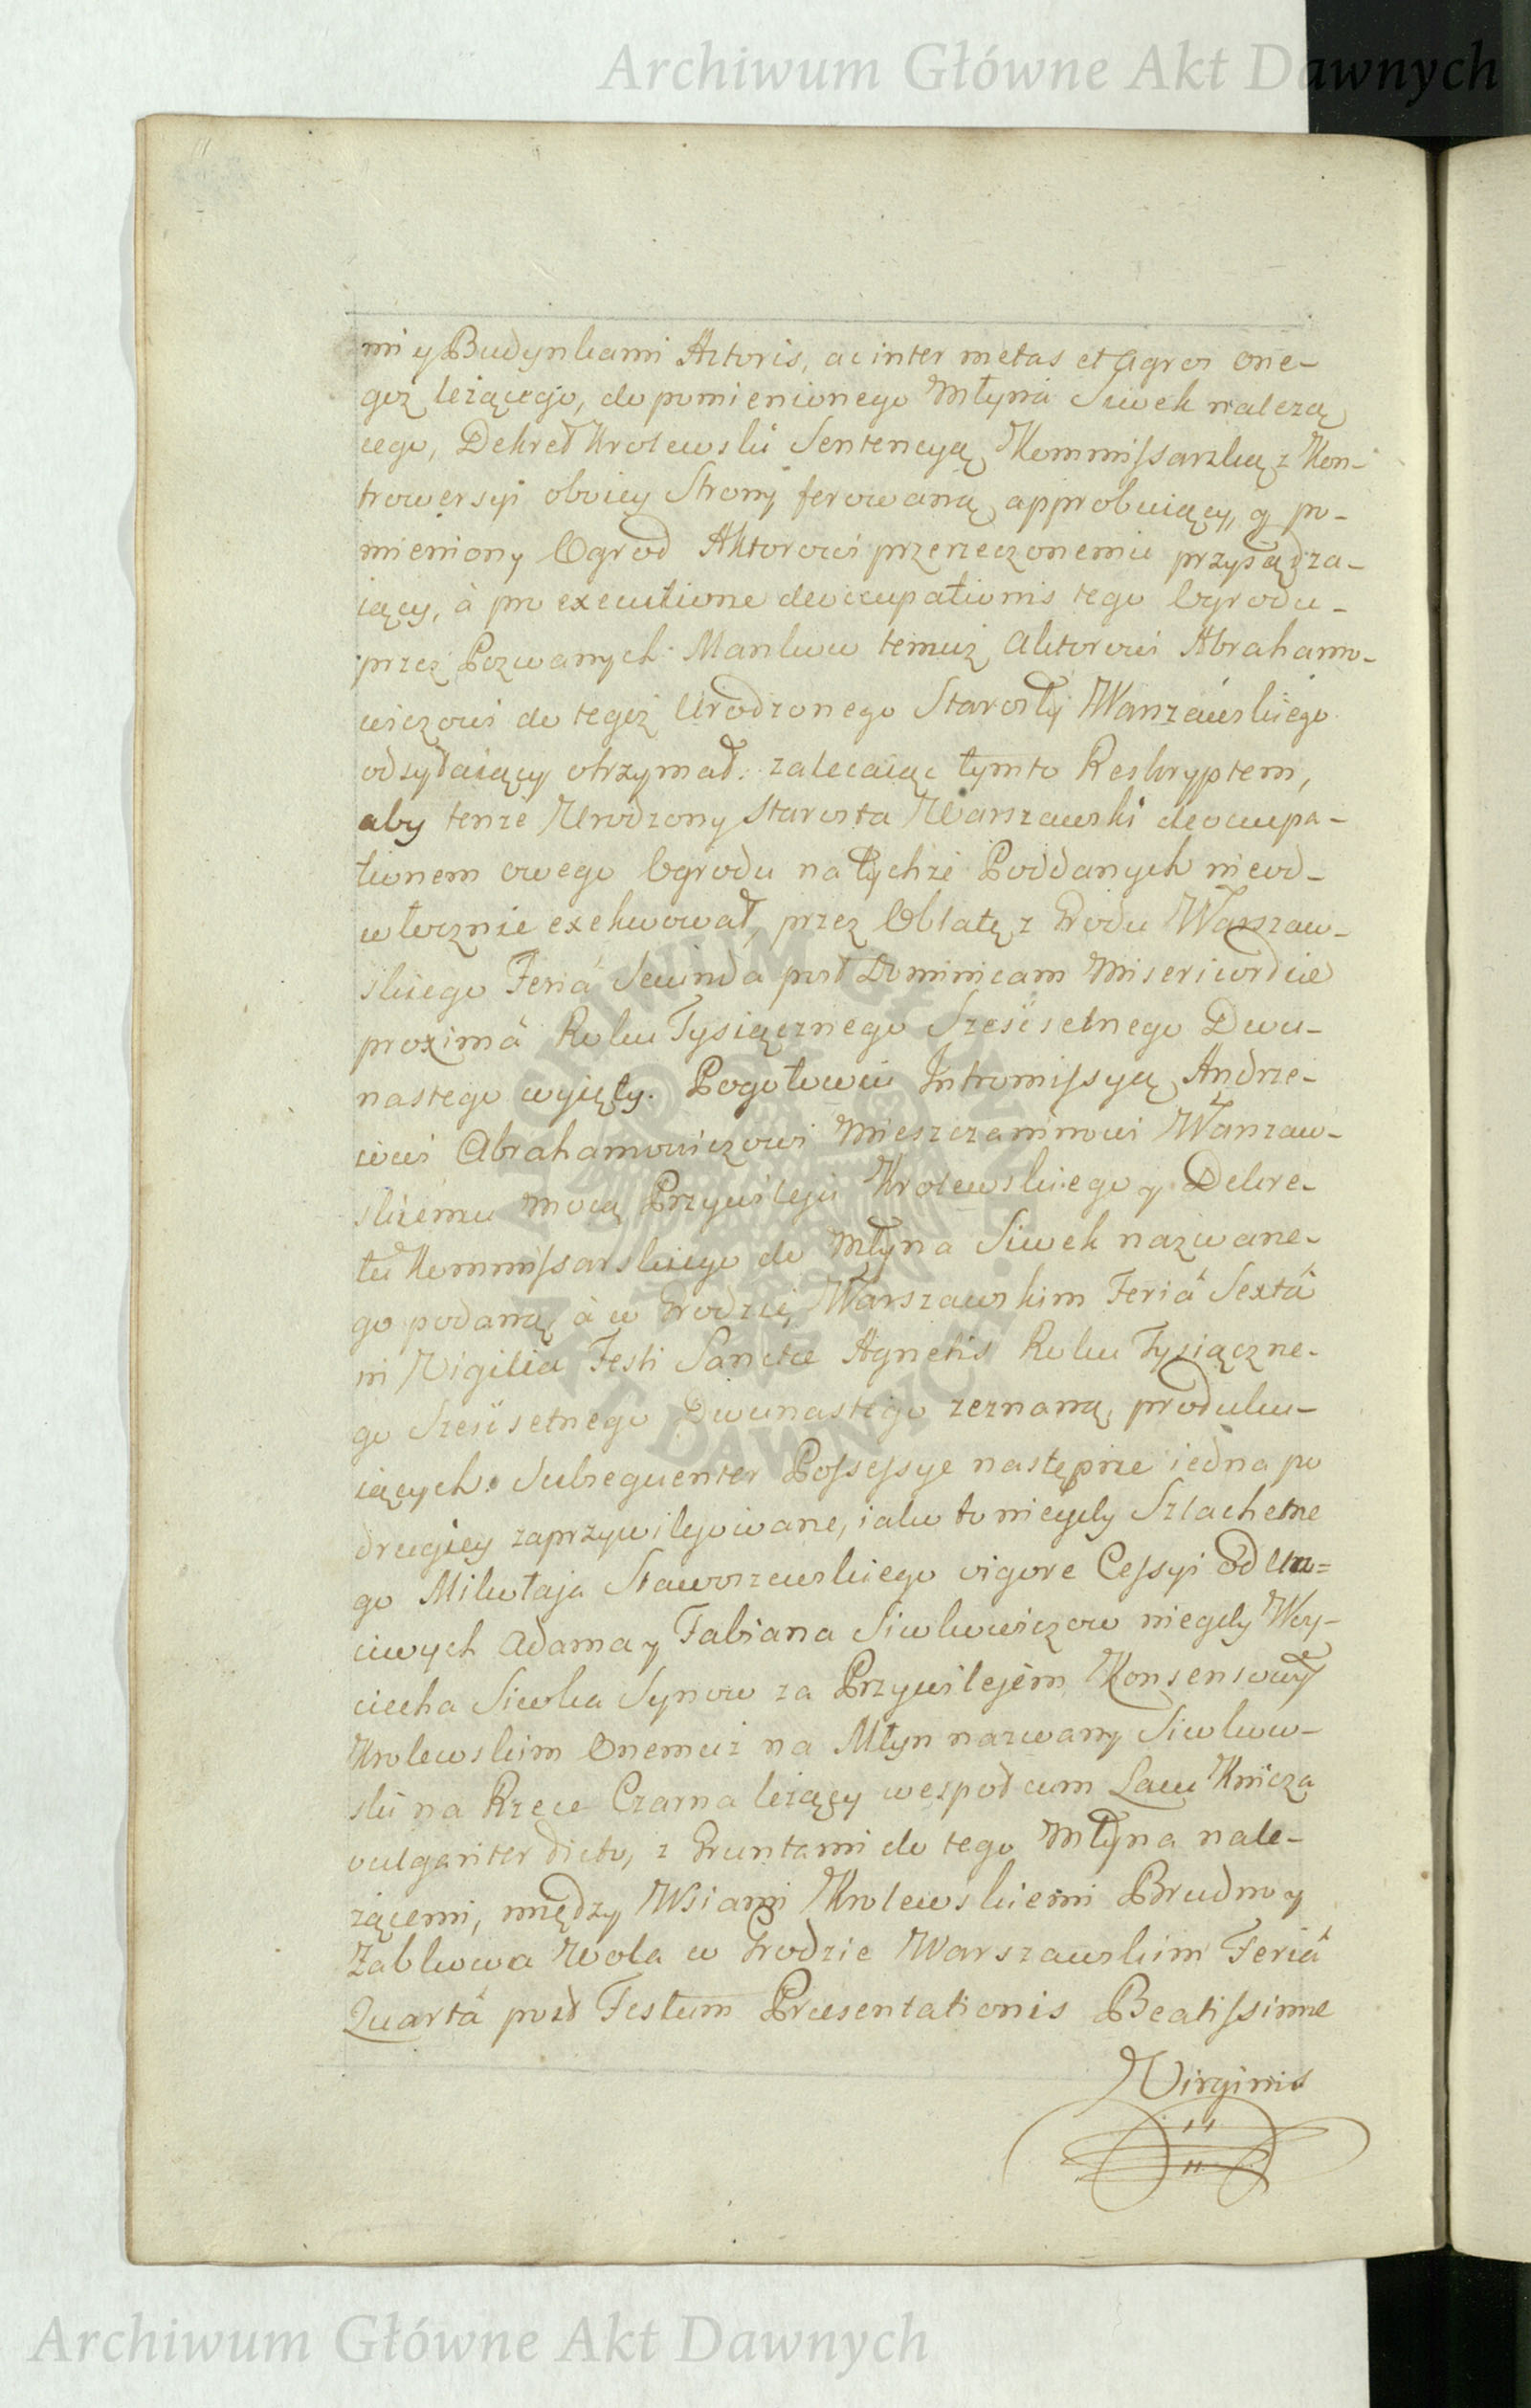 Archiwum Główne Akt Dawnych
mi y Budynkami Aktoris, ac inter metas et agros one-
goz leżącego, do pomienionego Młyna Siwek nalezą
cego, Dekret Krolewski Sentencyą Kommissarską z Kon-
trowersyi oboiey Strony ferowaną approbuiący, y po-
mieniony Ogrod Aktorowi przerzeczonemu przysądza-
iący, à pro executione deoccupationis tego Ogrodu-
przez Pozwanych Mankow temuż Aktorowi Abrahamo-
wiczowi do tegoż Urodzonego Starosty Warszawskiego
odsyłaiący otrzymał. zalecaiąc tymto Reskryptem,
aby tenze Urodzony Starosta Warszawski deoccupa-
tionem owego Ogrodu na tychże Poddanych nieod-
włocznie exekwował, przez Oblatę z Grodu Warszaw-
skiego Feriâ Secunda post Dominicam Misericordiæ
proximâ Roku Tysiącznego Sześćsetnego Dwu-
nastego wyięty. Pogotowiu Intromissyą Andrze-
iowi Abrahamowiczowi Mieszczaninowi Warszaw-
skiemu mocą Przywileju Krolewskiego y Dekre-
tu Kommissarskiego do Młyna Siwek nazwane-
go podaną, à w Grodzie Warszawskim Feriâ Sextâ
in Vigilia Festi Sanctæ Agnetis Roku Tysiączne-
go Sześćsetnego Dwunastego zeznaną, produku-
iących. Subsequenter Possessye następne iedna po
drugiey zaprzywilejowane, iako to niegdy Szlachetne
go Mikołaja Staworzewskiego vigore Cessyi od Ucz=
ciwych Adama y Fabiana Siwkowiczow niegdy Woy-
ciecha Siwka Synow za Przywilejem Konsensowym
Krolewskim Onemuż na Młyn nazwany Siwkow-
ski na Rzece Czarna leżący wespoł cum Lacu Knicza
vulgariter dicto, z Gruntami do tego Młyna nale-
żącemi, między Wsiami Krolewskiemi Brudno y
Ząbkowa Wola w Grodzie Warszawskim Feriâ
Quartâ post Festum Præsentationis Beatissimæ
Virginis
Archiwum Główne Akt Dawnych